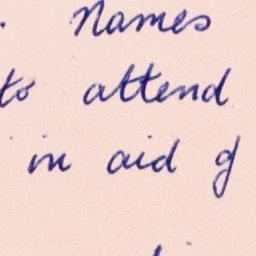 . Names
to attend
in aid of